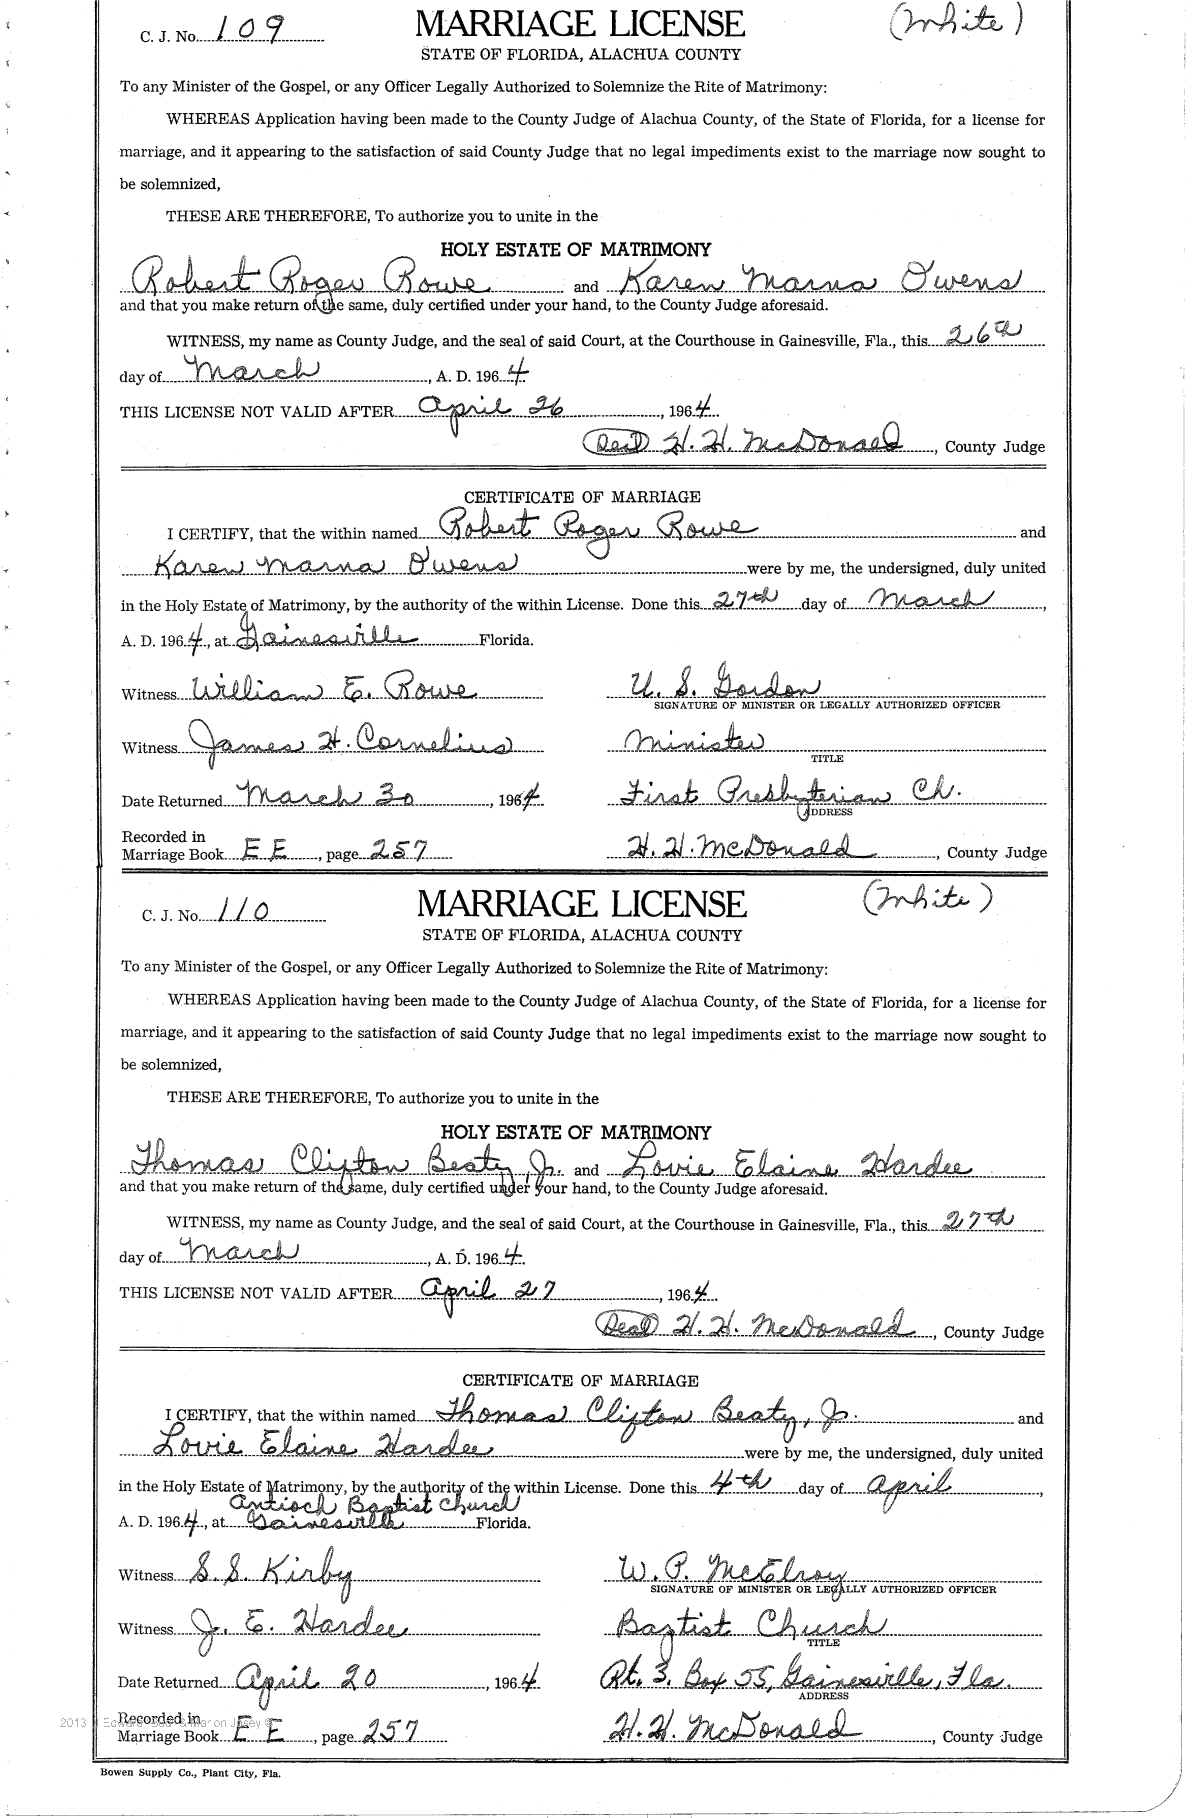 C. J. No. 109 MARRIAGE LICENSE (White)
STATE OF FLORIDA, ALACHUA COUNTY
To any Minister of the Gospel, or any Officer Legally Authorized to Solemnize the Rite of Matrimony:
WHEREAS Application having been made to the County Judge of Alachua County, of the State of Florida, for a license for
marriage, and it appearing to the satisfaction of said County Judge that no legal impediments exist to the marriage now sought to
be solemnized,
THESE ARE THEREFORE, To authorize you to unite in the
HOLY ESTATE OF MATRIMONY
Robert Roger Rowe and Karen Marna Owens
and that you make return of the same, duly certified under your hand, to the County Judge aforesaid.
WITNESS, my name as County Judge, and the seal of said Court, at the Courthouse in Gainesville, Fla., this 26th
day of March, A. D. 1964
THIS LICENSE NOT VALID AFTER April 26, 1964.
(Seal) H. H. McDonald, County Judge
CERTIFICATE OF MARRIAGE
I CERTIFY, that the within named Robert Roger Rowe and
Karen Marna Owens were by me, the undersigned, duly united
in the Holy Estate of Matrimony, by the authority of the within License. Done this 27th day of March,
A. D. 1964, at Gainesville Florida.
Witness William E. Rowe U. S. Gordon
SIGNATURE OF MINISTER OR LEGALLY AUTHORIZED OFFICER
Witness James H. Cornelius Minister
TITLE
Date Returned March 30, 1964 First Presbyterian Ch.
ADDRESS
Recorded in
Marriage Book EE, page 257 H. H. McDonald, County Judge
C. J. No. 110 MARRIAGE LICENSE (White)
STATE OF FLORIDA, ALACHUA COUNTY
To any Minister of the Gospel, or any Officer Legally Authorized to Solemnize the Rite of Matrimony:
WHEREAS Application having been made to the County Judge of Alachua County, of the State of Florida, for a license for
marriage, and it appearing to the satisfaction of said County Judge that no legal impediments exist to the marriage now sought to
be solemnized,
THESE ARE THEREFORE, To authorize you to unite in the
HOLY ESTATE OF MATRIMONY
Thomas Clifton Beaty, Jr. and Lovie Elaine Hardee
and that you make return of the same, duly certified under your hand, to the County Judge aforesaid.
WITNESS, my name as County Judge, and the seal of said Court, at the Courthouse in Gainesville, Fla., this 27th
day of March, A. D. 1964.
THIS LICENSE NOT VALID AFTER April 27, 1964.
(Seal) H. H. McDonald, County Judge
CERTIFICATE OF MARRIAGE
I CERTIFY, that the within named Thomas Clifton Beaty, Jr. and
Lovie Elaine Hardee were by me, the undersigned, duly united
in the Holy Estate of Matrimony, by the authority of the within License. Done this 4th day of April,
Antioch Baptist Church
A. D. 1964, at Gainesville Florida.
Witness S. S. Kirby W. P. McElroy
SIGNATURE OF MINISTER OR LEGALLY AUTHORIZED OFFICER
Witness J. E. Hardee Baptist Church
TITLE
Date Returned April 20, 1964 Rt. 3, Box 55, Gainesville, Fla.
ADDRESS
Recorded in
Marriage Book EE, page 257 H. H. McDonald, County Judge
Bowen Supply Co., Plant City, Fla.
2013